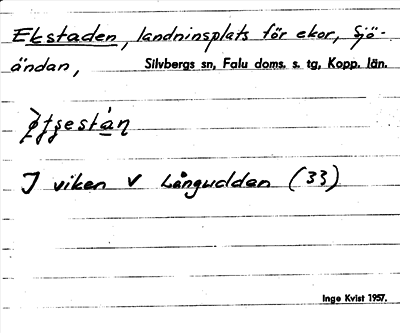 Ekstaden, landninsplats för ekor, Sjö-
ändan, Silvbergs sn, Falu doms. s. tg, Kopp. län.
I viken v Långuddan (33)
Inge Kvist 1957.